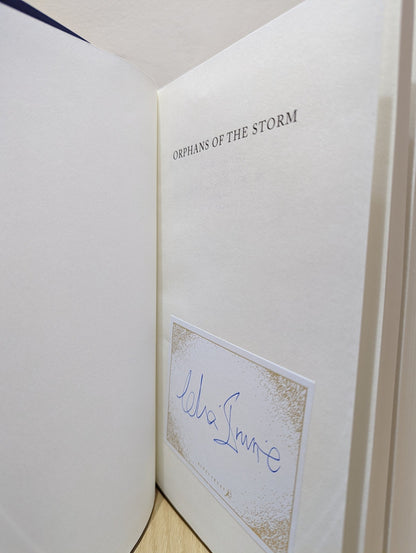 ORPHANS OF THE STORM
Celia Imrie